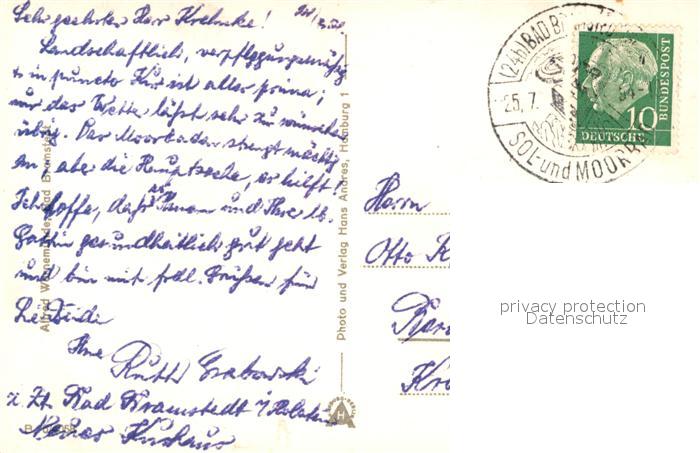 Sehr geehrter Herr Krehnke!
Landschaftlich, verpflegungsmäßig
u. in puncto Kur ist alles prima;
nur das Wetter läßt sehr zu wünschen
übrig. Das Moorbaden strengt mächtig
an, aber die Hauptsache, es hilft!
Ich hoffe, daß es Ihnen und Ihrer lb.
Gattin gesundheitlich gut geht
und bin mit frdl. Grüßen für
Sie beide
Ihre
Ruth Grabowski
z. Zt. Bad Bramstedt / Holstein
Neues Kurhaus
Alfred Bad Bramstedt
Photo und Verlag Hans Andres, Hamburg 1
(24b) BAD
25. 7.
SOL- und MOORB
10
DEUTSCHE
BUNDESPOST
Herrn
Otto K
privacy protection
Datenschutz